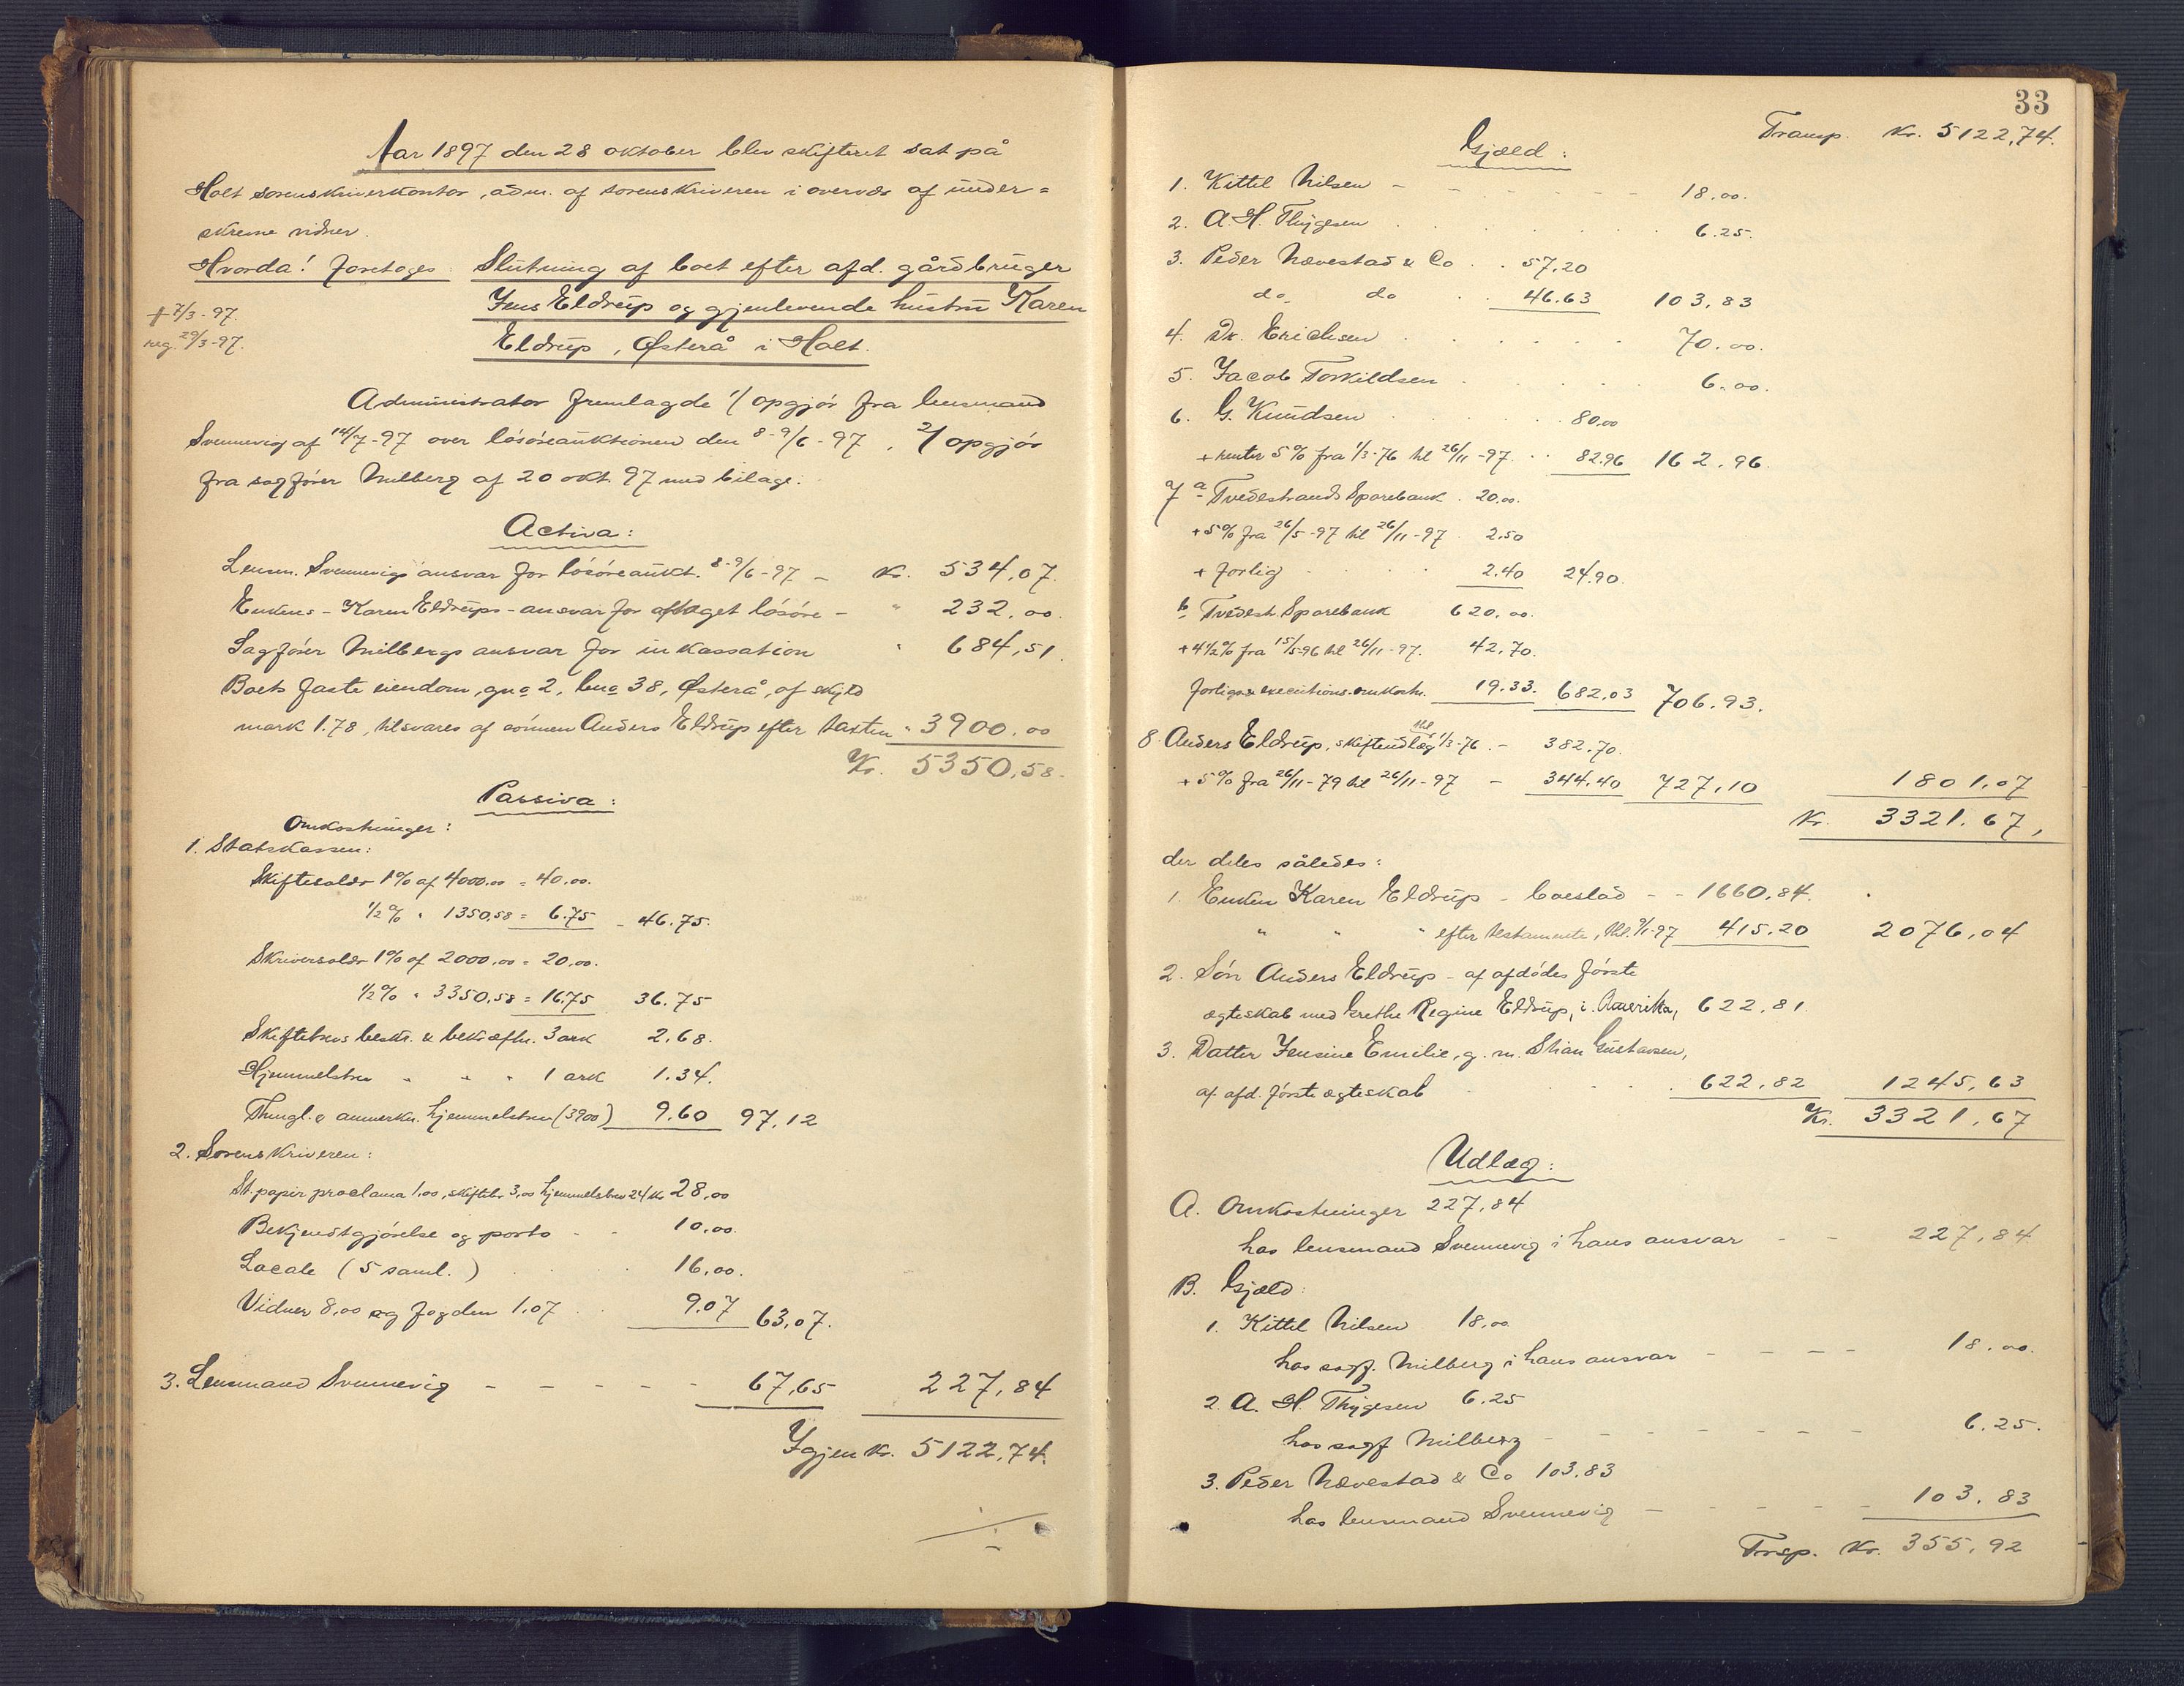 Aar 1897 den 28 oktober blev skifteret sat på
Holt sorenskriverkontor, adm. af sorenskriveren i overvær af under=
skrevne vidner.
Hvorda! foretoges: Slutning af boet efter afd. gårdbruger
Jens Eldrup og gjenlevende hustru Karen
Eldrup, Østerå i Holt.
† 7/3-97.
reg. 29/3-97.
Administrator fremlagde 1/ opgjör fra lensmand
Svennevig af 14/7-97 over lösöreauktionen den 8-9/6-97, 2/ opgjör
fra sagförer Milberg af 20 okt. 97 med bilage.
Activa:
Lensm. Svennevigs ansvar for lösöreaukt. 8-9/6-97 – Kr. 534,07.
Enkens – Karen Eldrups – ansvar for aftaget lösöre – " 232,00.
Sagförer Milbergs ansvar for inkassation " 684,51.
Boets faste eiendom, gno 2, bno 38, Østerå, af skyld
mark 1.78, tilsvares af sönnen Anders Eldrup efter taxten " 3900.00
Kr. 5350,58.
Passiva:
Omkostninger:
1. Statskassen:
Skiftesalær 1% af 4000.00 = 40.00.
1/2% " 1350,58 = 6.75 – 46.75.
Skriversalær 1% af 2000,00 = 20.00.
1/2% " 3350,58 = 16.75 36.75
Skiftebrevs beskr. & bekræftn. 3 ark 2.68.
Hjemmelsbrev " " " 1 ark 1.34.
Thingl. & anmerkn. hjemmelsbrev (3900) 9.60 97,12
2. Sorenskriveren:
St. papir proclama 1.00, skiftebr. 3,00 hjemmelsbrev 24 Kr 28,00
Bekjendtgjörelse og porto - - 10.00.
Locale (5 saml.) . . . 16,00.
Vidner 8,00 og fogden 1.07 . . 9.07 63,07.
3. Lensmand Svennevig – – – – – 67,65 227,84
Igjen Kr. 5122,74.
33
Transp. Kr. 5122,74.
Gjæld:
1. Kittil Nilsen – – – – – – 18.00.
2. A. H. Thygesen . . . . . . 6.25.
3. Peder Nævestad & Co . . 57.20
do do . . 46.63 103,83
4. Dr. Erichsen . . . . . 70.00.
5. Jacob Torkildsen . . . . 6.00.
6. G. Knudsen . . . . 80,00
+ renter 5% fra 1/3-76 til 26/11-97 . . 82.96 162.96.
7 a Tvedestrands Sparebank . 20.00.
+ 5% fra 26/5-97 til 26/11-97 2.50
+ forlig . . . . 2.40 24.90.
b. Tvedestr. Sparebank 620.00.
+ 4 1/2% fra 15/5-96 til 26/11-97. 42.70.
forligs & executions-omkostn. 19.33. 682.03 706.93.
8. Anders Eldrup, skifteudlæg thl. 1/3-76 . – 382.70.
+ 5% fra 26/11-79 til 26/11-97 – 344.40 727,10 1801,07
Kr. 3321.67,
der deles således:
1. Enken Karen Eldrup – boeslod – – 1660,84.
" " " efter testamente, thl. 9/1-97 415.20 2076,04
2. Sön Anders Eldrup – af afdödes förste
ægteskab med Grethe Regine Eldrup, i Amerika, 622,81.
3. Datter Jensine Emilie, g. m. Stian Gustavsen,
af afd. förste ægteskab . . . . 622,82 1245,63
Kr. 3321,67
Udlæg:
A. Omkostninger 227,84
hos lensmand Svennevig i hans ansvar – – 227,84
B. Gjæld:
1. Kittil Nilsen 18,00
hos sagf. Milberg i hans ansvar – – – – 18.00.
2. A. H. Thygesen 6.25
hos sagf Milberg – – – – – – – 6.25.
3. Peder Nævestad & Co 103.83
hos lensmand Svennevig – – – – – 103.83
Trsp. Kr. 355,92